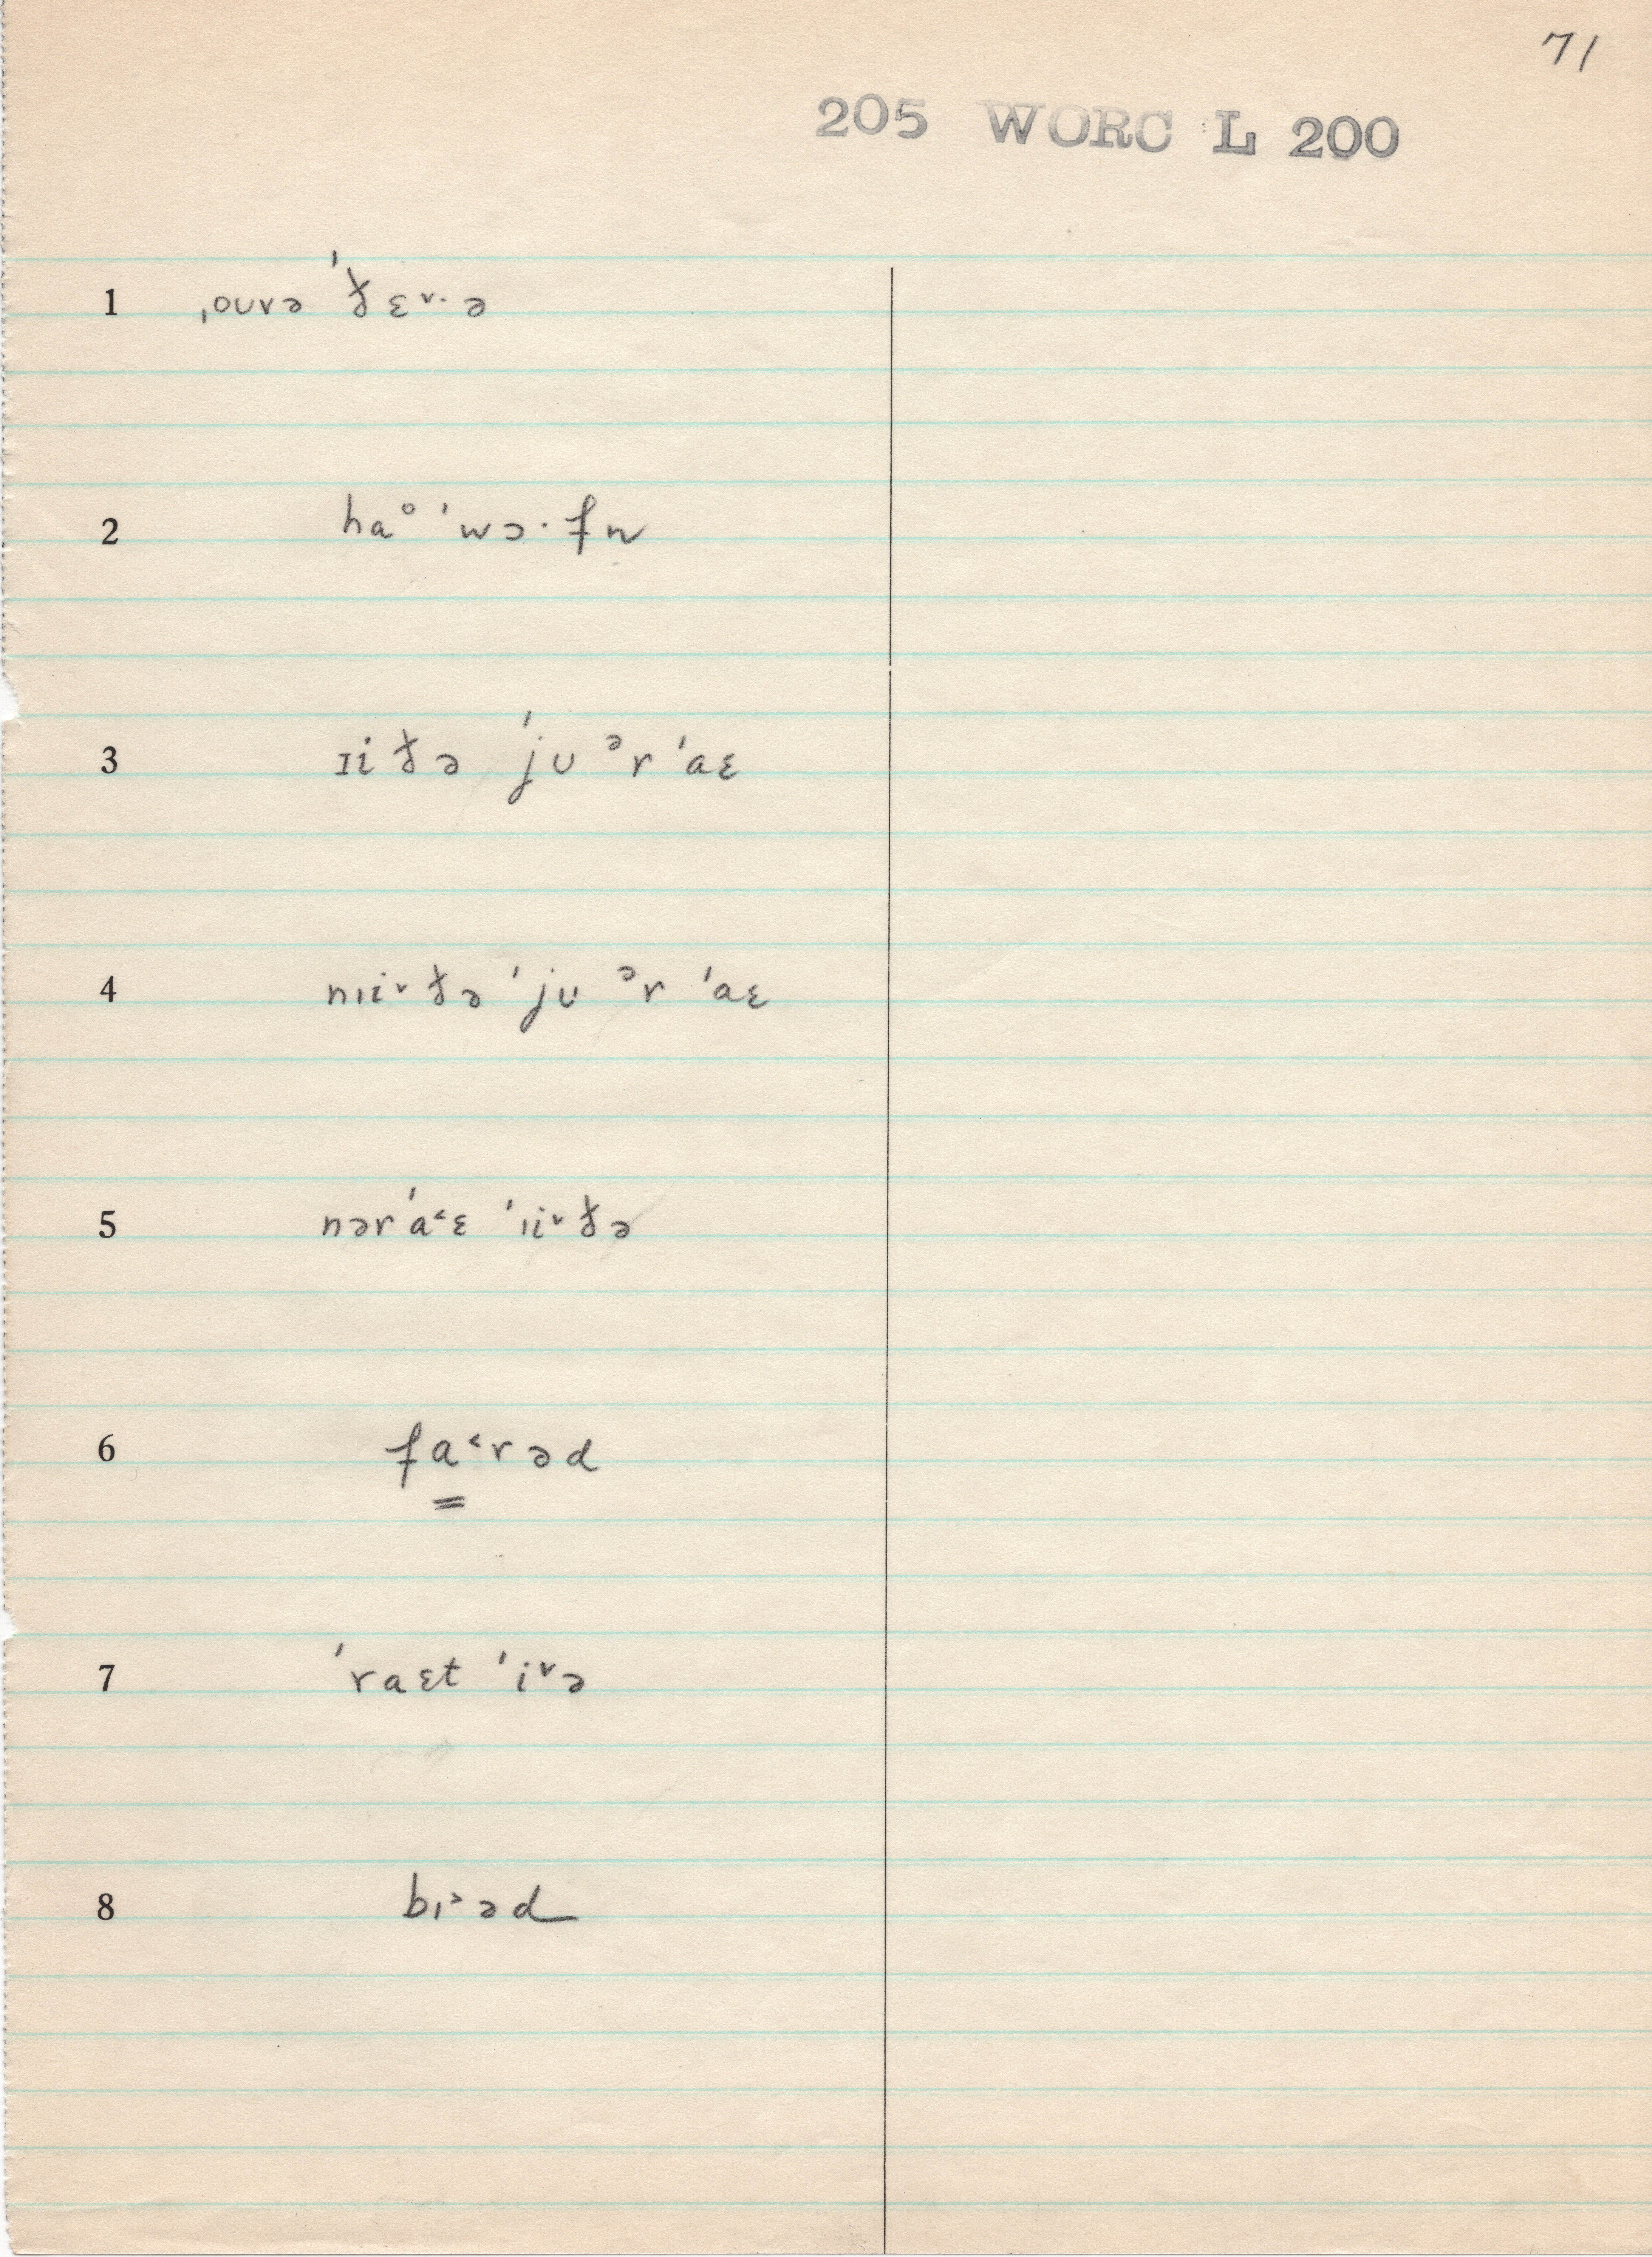 71
205 WORC L 200
1 ˌoʊvə ˈðɛ˅·ə
2 haᵒ ˈwɔ·fn
3 ɪiðə ˈjʊ ᵊr ˈaɛ
4 nɪi˅ðə ˈjʊ ᵊr ˈaɛ
5 nərˈa˂ɛ ˈɪi˅ðə
6 fa˂rəd
7 ˈraɛt ˈi˅ə
8 bɪ˃əd